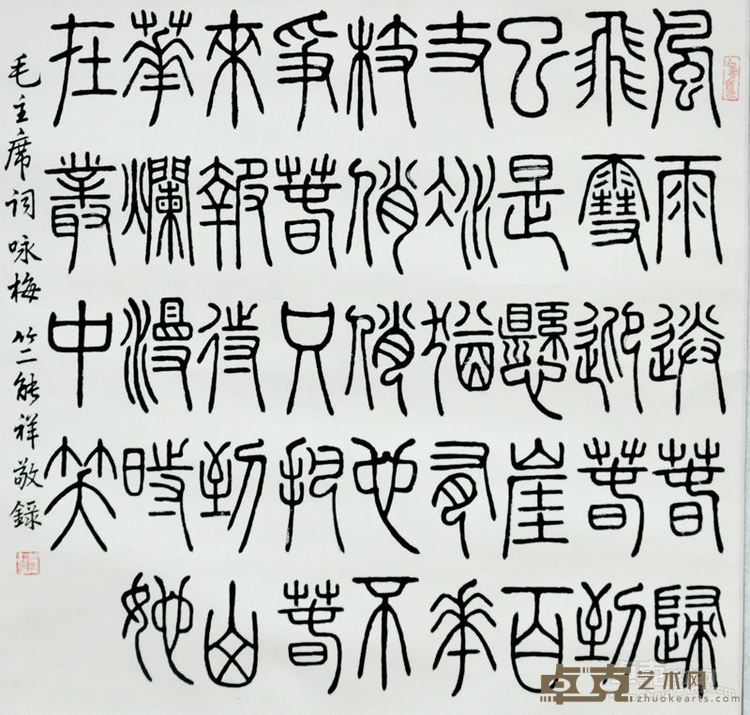 風雨送春歸
飛雪迎春到
已是懸崖百
丈冰猶有華
枝俏俏也不
爭春只把春
來報待到山
華爛漫時她
在叢中笑
毛主席词咏梅 竺能祥敬録
卓克艺术网
zhuokearts.com